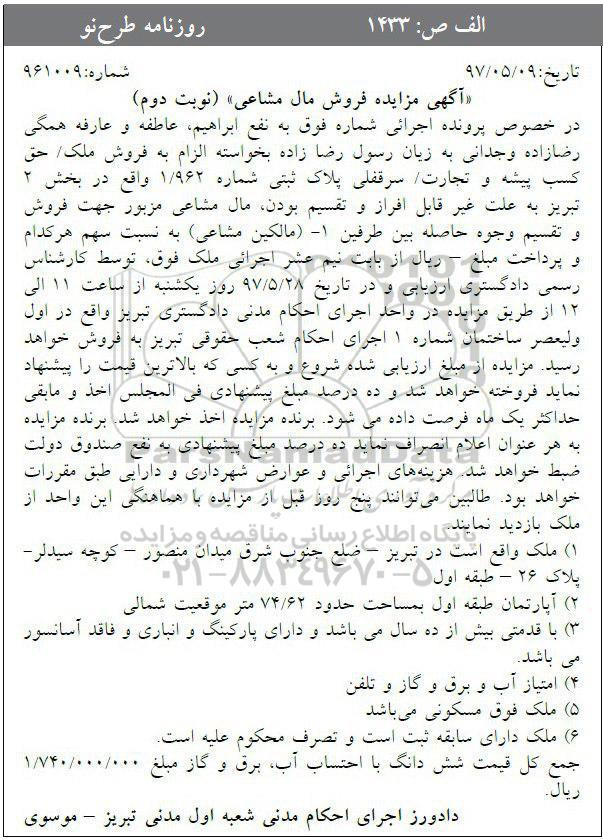 الف ص: ۱۴۳۳
روزنامه طرح‌نو
تاریخ:۹۷/۰۵/۰۹
شماره:۹۶۱۰۰۹
«آگهی مزایده فروش مال مشاعی» (نوبت دوم)
در خصوص پرونده اجرائی شماره فوق به نفع ابراهیم، عاطفه و عارفه همگی
رضازاده وجدانی به زیان رسول رضا زاده بخواسته الزام به فروش ملک/ حق
کسب پیشه و تجارت/ سرقفلی پلاک ثبتی شماره ۱/۹۶۲ واقع در بخش ۲
تبریز به علت غیر قابل افراز و تقسیم بودن، مال مشاعی مزبور جهت فروش
و تقسیم وجوه حاصله بین طرفین ۱- (مالکین مشاعی) به نسبت سهم هرکدام
و پرداخت مبلغ – ریال از بابت نیم عشر اجرائی ملک فوق، توسط کارشناس
رسمی دادگستری ارزیابی و در تاریخ ۹۷/۵/۲۸ روز یکشنبه از ساعت ۱۱ الی
۱۲ از طریق مزایده در واحد اجرای احکام مدنی دادگستری تبریز واقع در اول
ولیعصر ساختمان شماره ۱ اجرای احکام شعب حقوقی تبریز به فروش خواهد
رسید. مزایده از مبلغ ارزیابی شده شروع و به کسی که بالاترین قیمت را پیشنهاد
نماید فروخته خواهد شد و ده درصد مبلغ پیشنهادی فی المجلس اخذ و مابقی
حداکثر یک ماه فرصت داده می شود. برنده مزایده اخذ خواهد شد. برنده مزایده
به هر عنوان اعلام انصراف نماید ده درصد مبلغ پیشنهادی به نفع صندوق دولت
ضبط خواهد شد. هزینه‌های اجرائی و عوارض شهرداری و دارایی طبق مقررات
خواهد بود. طالبین می‌توانند پنج روز قبل از مزایده با هماهنگی این واحد از
ملک بازدید نمایند.
پایگاه اطلاع رسانی مناقصه و مزایده
۱) ملک واقع است در تبریز – ضلع جنوب شرق میدان منصور – کوچه سیدلر-
۰۲۱-۸۸۳۴۹۶۷۰-۵
پلاک ۲۶ – طبقه اول
۲) آپارتمان طبقه اول بمساحت حدود ۷۴/۶۲ متر موقعیت شمالی
۳) با قدمتی بیش از ده سال می باشد و دارای پارکینگ و انباری و فاقد آسانسور
می باشد.
۴) امتیاز آب و برق و گاز و تلفن
۵) ملک فوق مسکونی می‌باشد
۶) ملک دارای سابقه ثبت است و تصرف محکوم علیه است.
جمع کل قیمت شش دانگ با احتساب آب، برق و گاز مبلغ ۱/۷۴۰/۰۰۰/۰۰۰
ریال.
دادورز اجرای احکام مدنی شعبه اول مدنی تبریز – موسوی